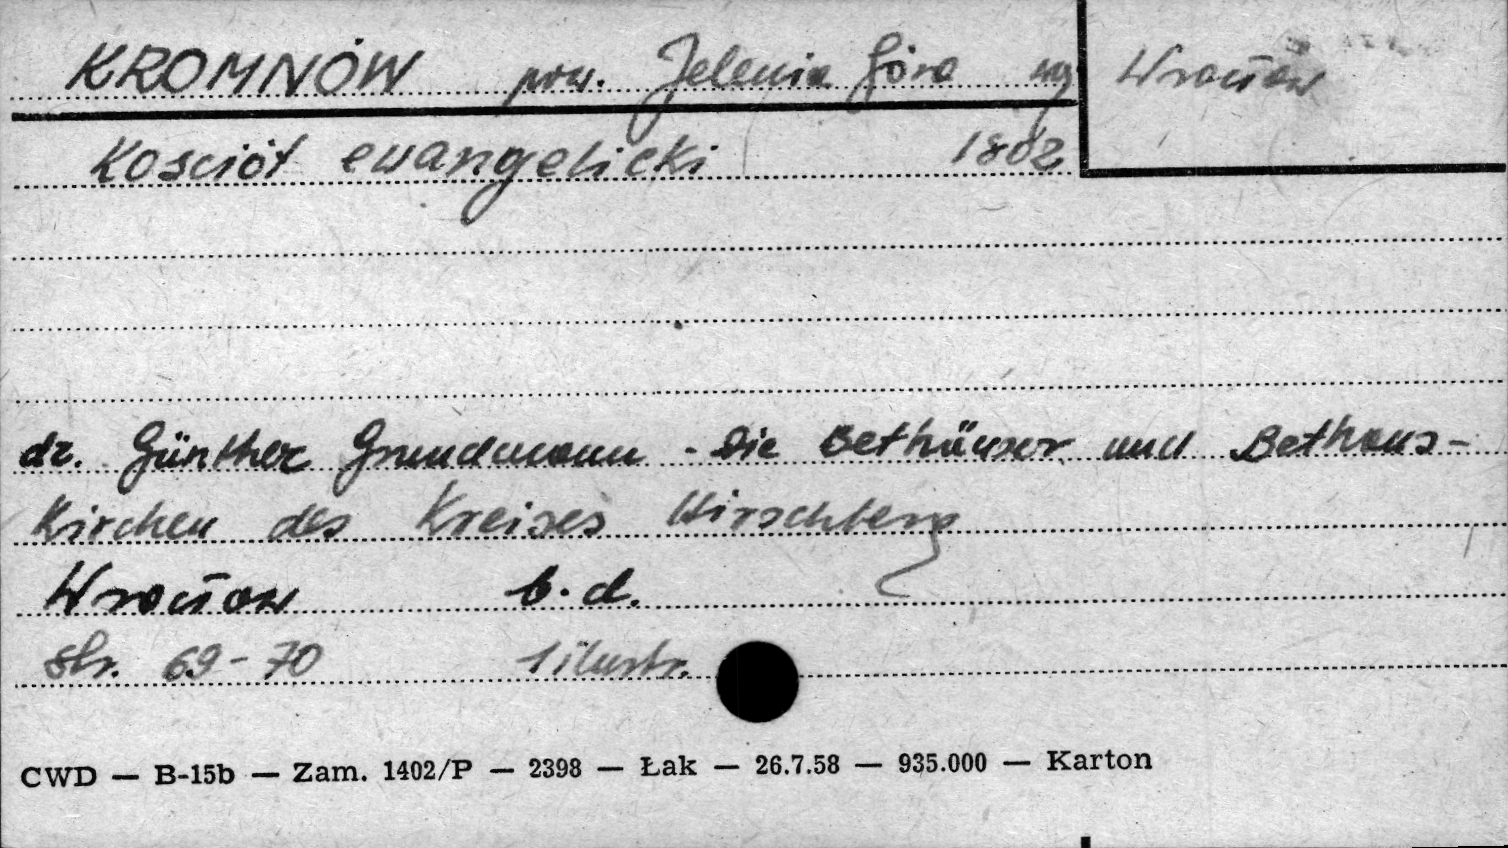 KROMNÓW pow. Jelenia Góra
Wrocław
Kościół ewangelicki 1802
dr. Günther Grundmann - Die Bethäuser und Bethaus-
Kirchen des Kreises Hirschberg
Wrocław b.d.
str. 69-70 1 ilustr.
CWD — B-15b — Zam. 1402/P — 2398 — Łak — 26.7.58 — 935.000 — Karton